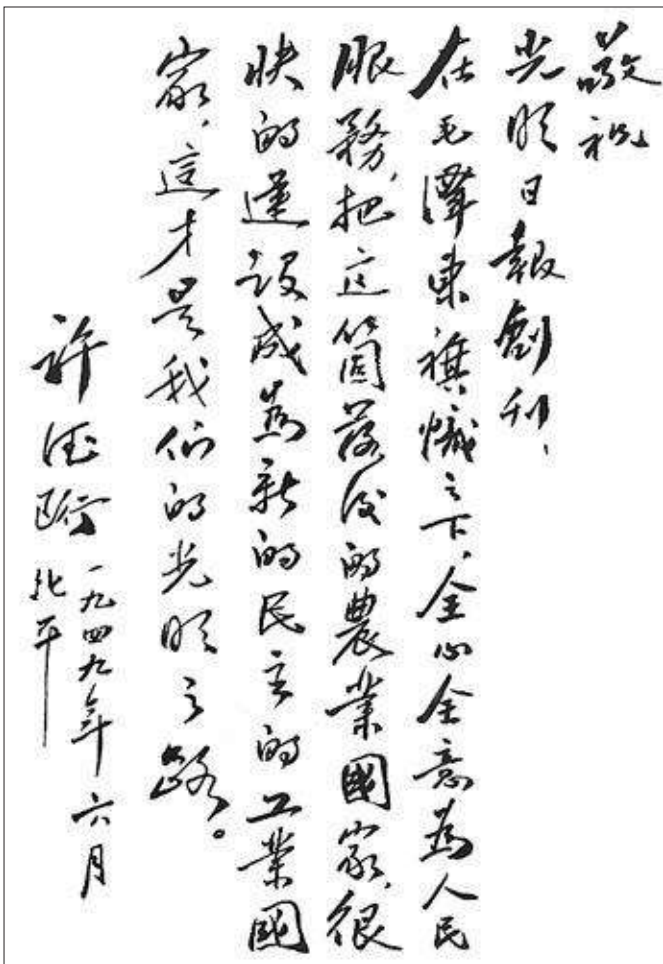 敬祝
光明日報創刊、
在毛澤東旗幟之下，全心全意為人民
服務，把這箇落後的農業國家，很
快的建設成為新的民主的工業國
家，這才是我们的光明之路。
許德珩
一九四九年六月
北平